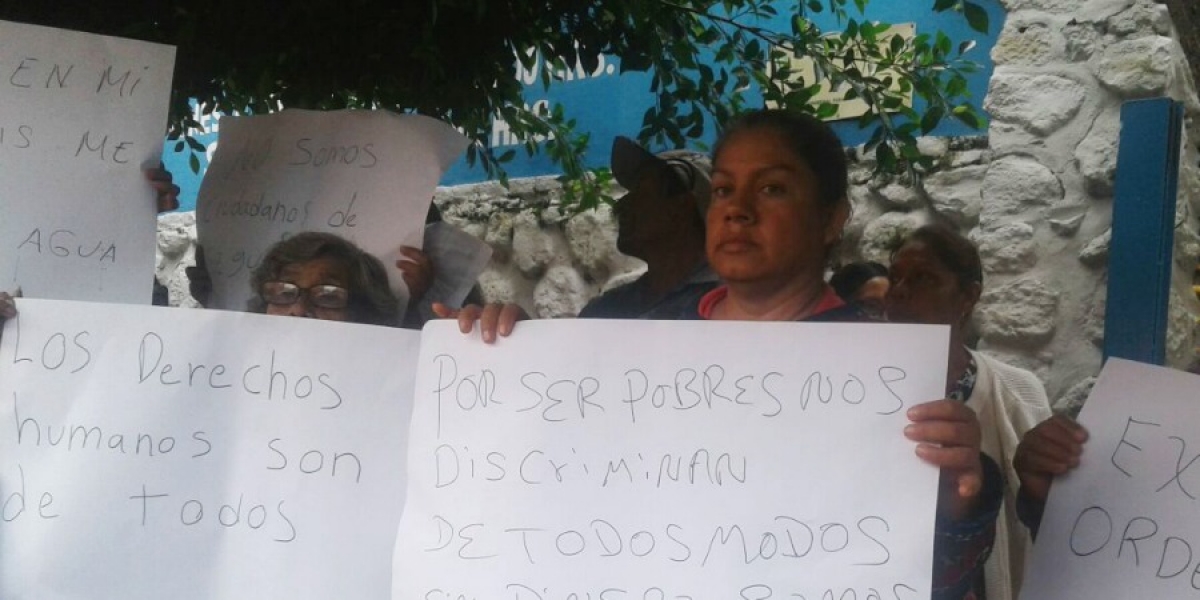 EN MI
ME
AGUA
NO SOMOS
Ciudadanos de
LOS Derechos
humanos son
de todos
POR SER POBRES NOS
DISCriMINAN
DE TODOS MODOS
SIN DINERO SOMOS
EX
ORDE